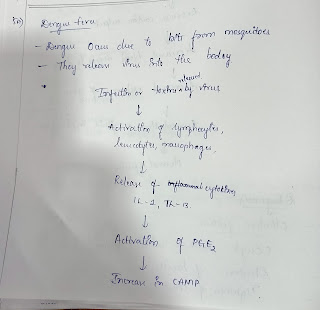 Dengue fever
- Dengue Occurs due to bite from mosquitoes
- They release virus into the body
Infection or released by virus
↓
Activation of lymphocytes,
leucocytes, macrophages,
↓
Release of cytokines
IL-1, IL-13
↓
Activation of PGE2
↓
Increase in CAMP